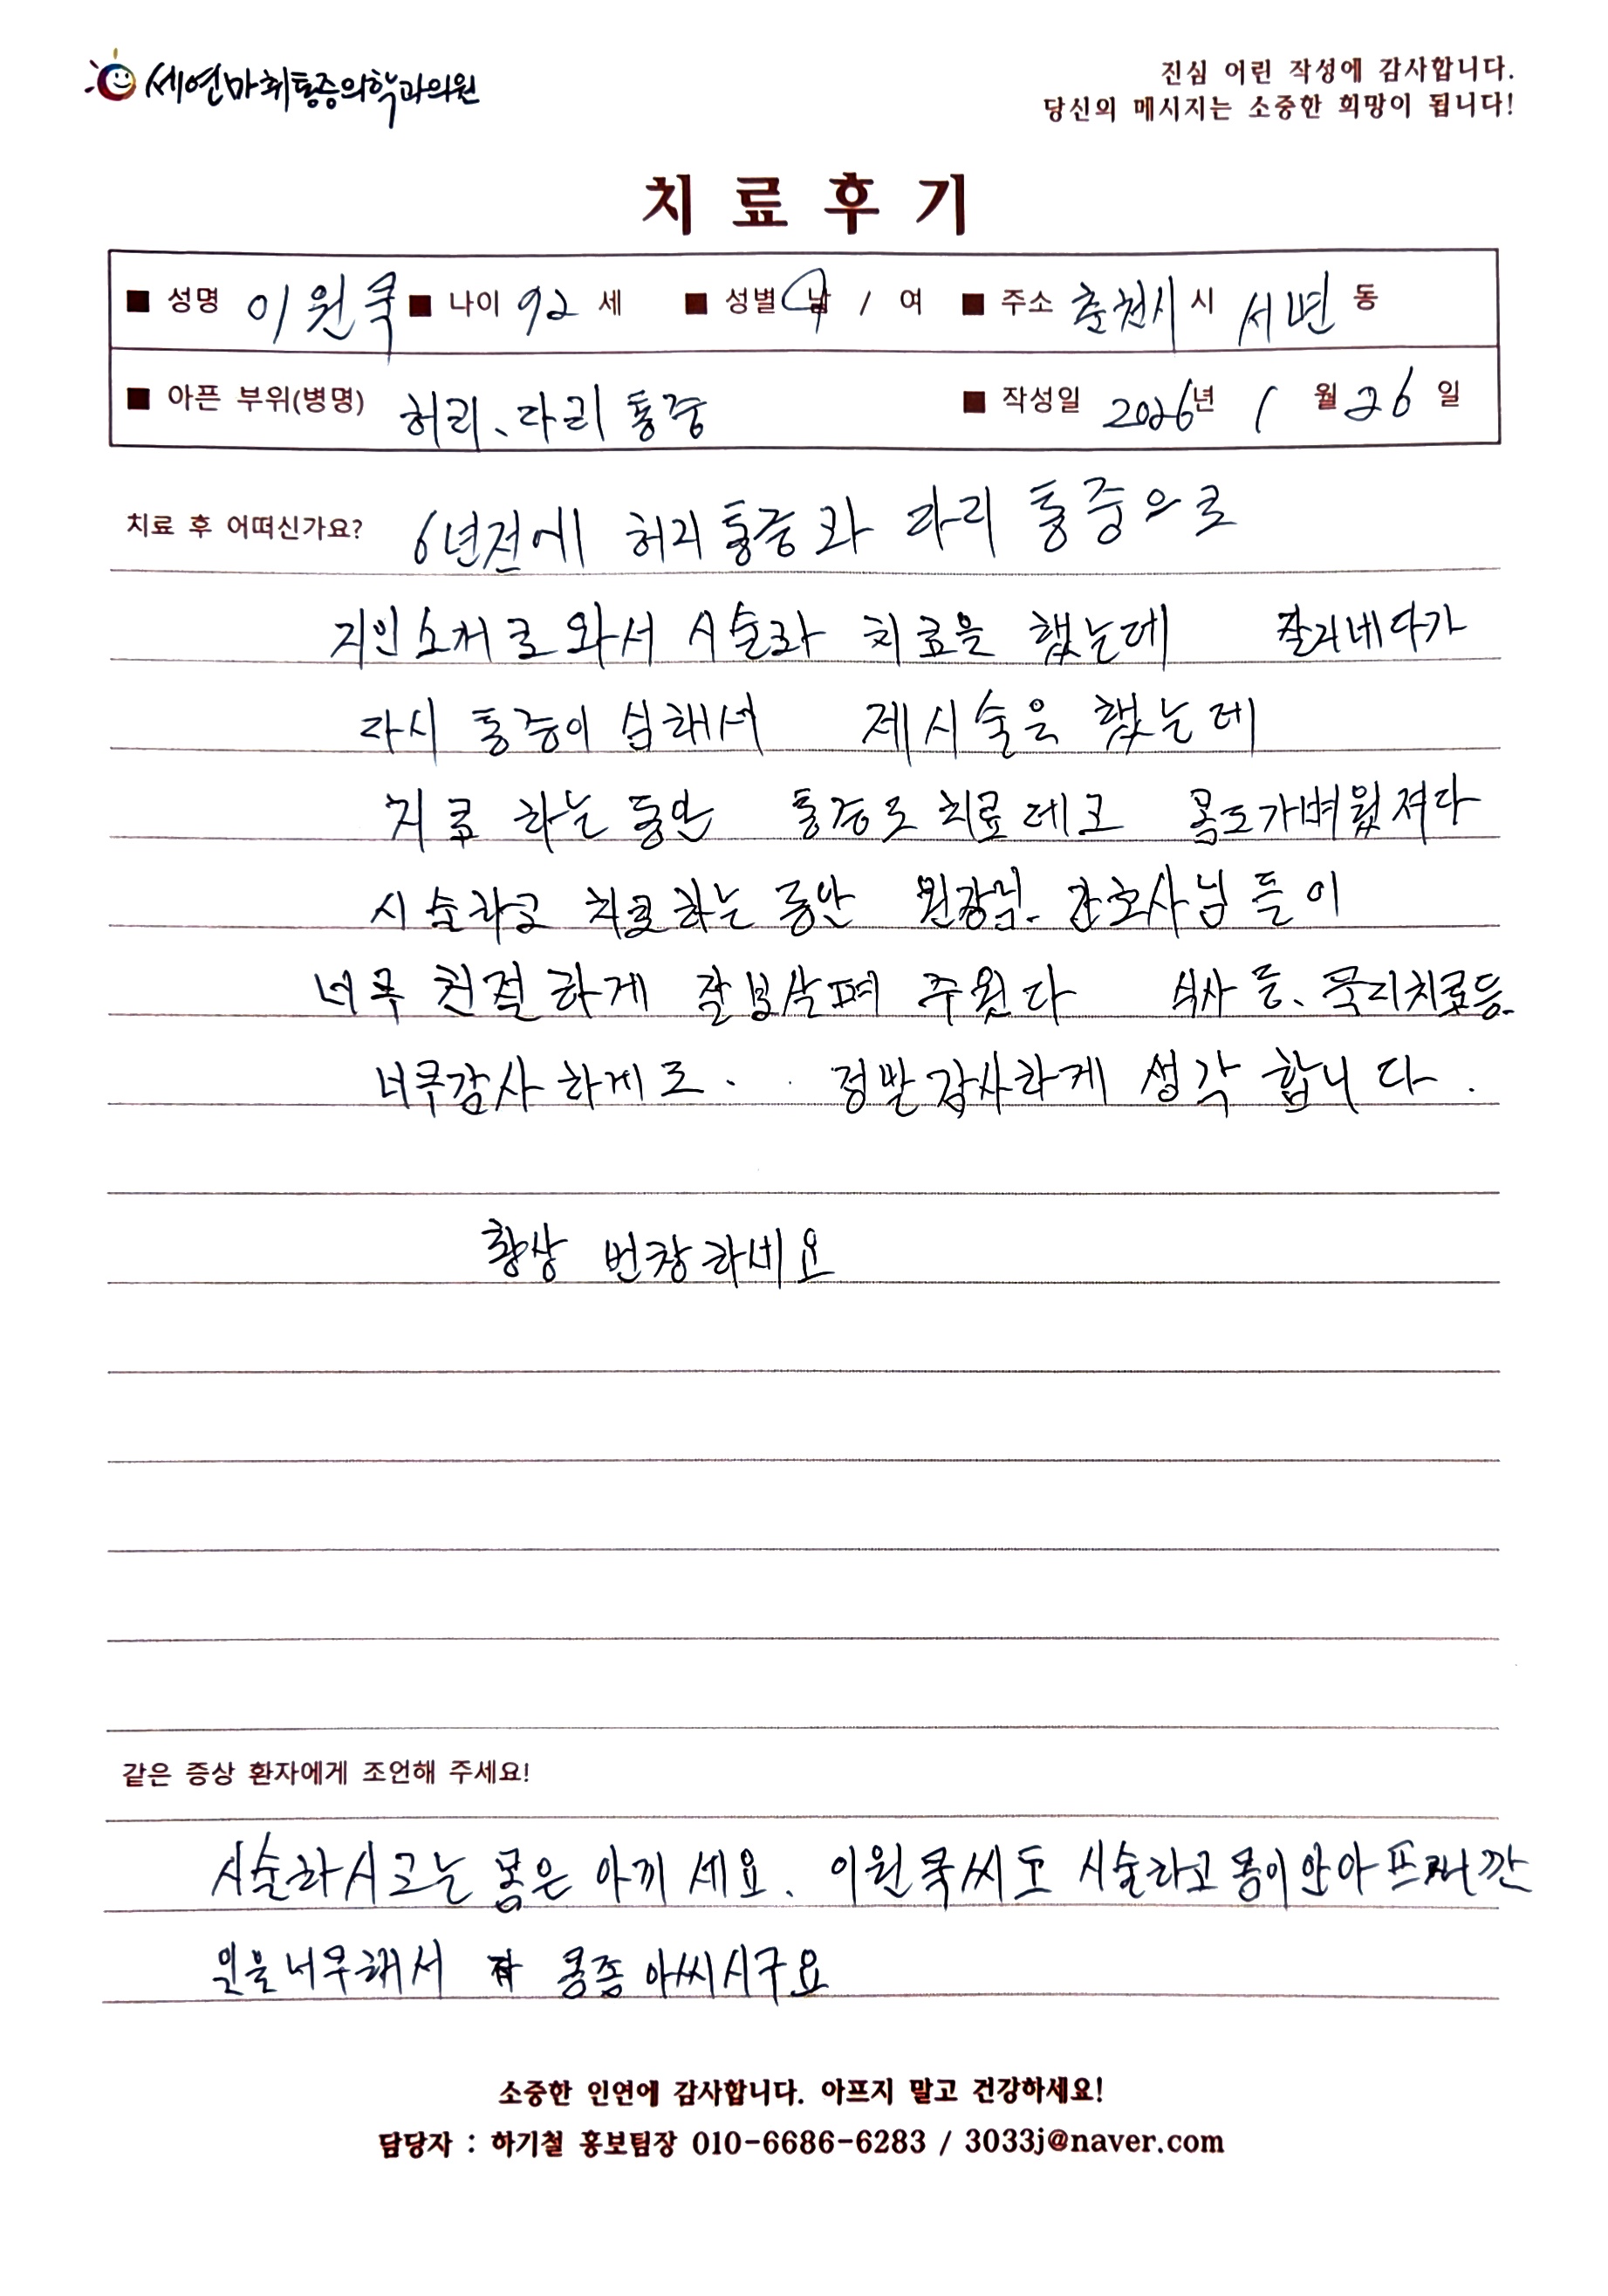 세연마취통증의학과의원
진심 어린 작성에 감사합니다.
당신의 메시지는 소중한 희망이 됩니다!
치 료 후 기
■ 성명 이원국 ■ 나이 92 세 ■ 성별 남 / 여 ■ 주소 춘천시 시 서면 동
■ 아픈 부위(병명) 허리、다리 통증 ■ 작성일 2026년 1 월 26 일
치료 후 어떠신가요? 6년전에 허리통증과 다리 통증으로
지인소개로 와서 시술과 치료을 했는데 잘지네다가
다시 통증이 심해서 제시술은 했는데
치료 하는 동안 통증도 치료데고 몸도가벼웠져다
시술하고 치료하는 동안 원장님. 간호사님 들이
너무 친절하게 잘보살펴 주웠다 식사 등、물리치료등.
너무감사하게도. . 정말감사하게 생각 합니다.
항상 번창하세요
같은 증상 환자에게 조언해 주세요!
시술하시고는 몸은 아끼세요、이원국씨도 시술하고몸이안아프 깐
일을너무해서 몸좀아씨시구요
소중한 인연에 감사합니다. 아프지 말고 건강하세요!
담당자 : 하기철 홍보팀장 010-6686-6283 / 3033j@naver.com